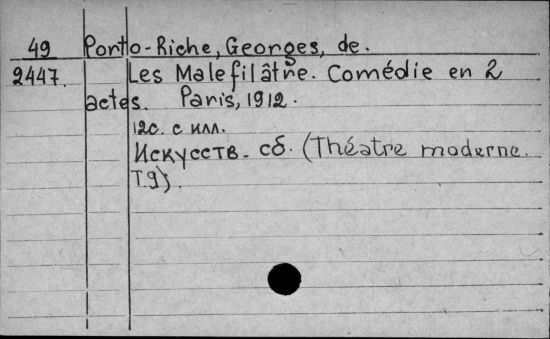 49 Porto-Riche, Georges, de.
2447. Les Malefilâtre. Comédie en 2
actes. Paris, 1912.
12с. с илл.
Искусств. сб. (Théatre moderne.
T.9).